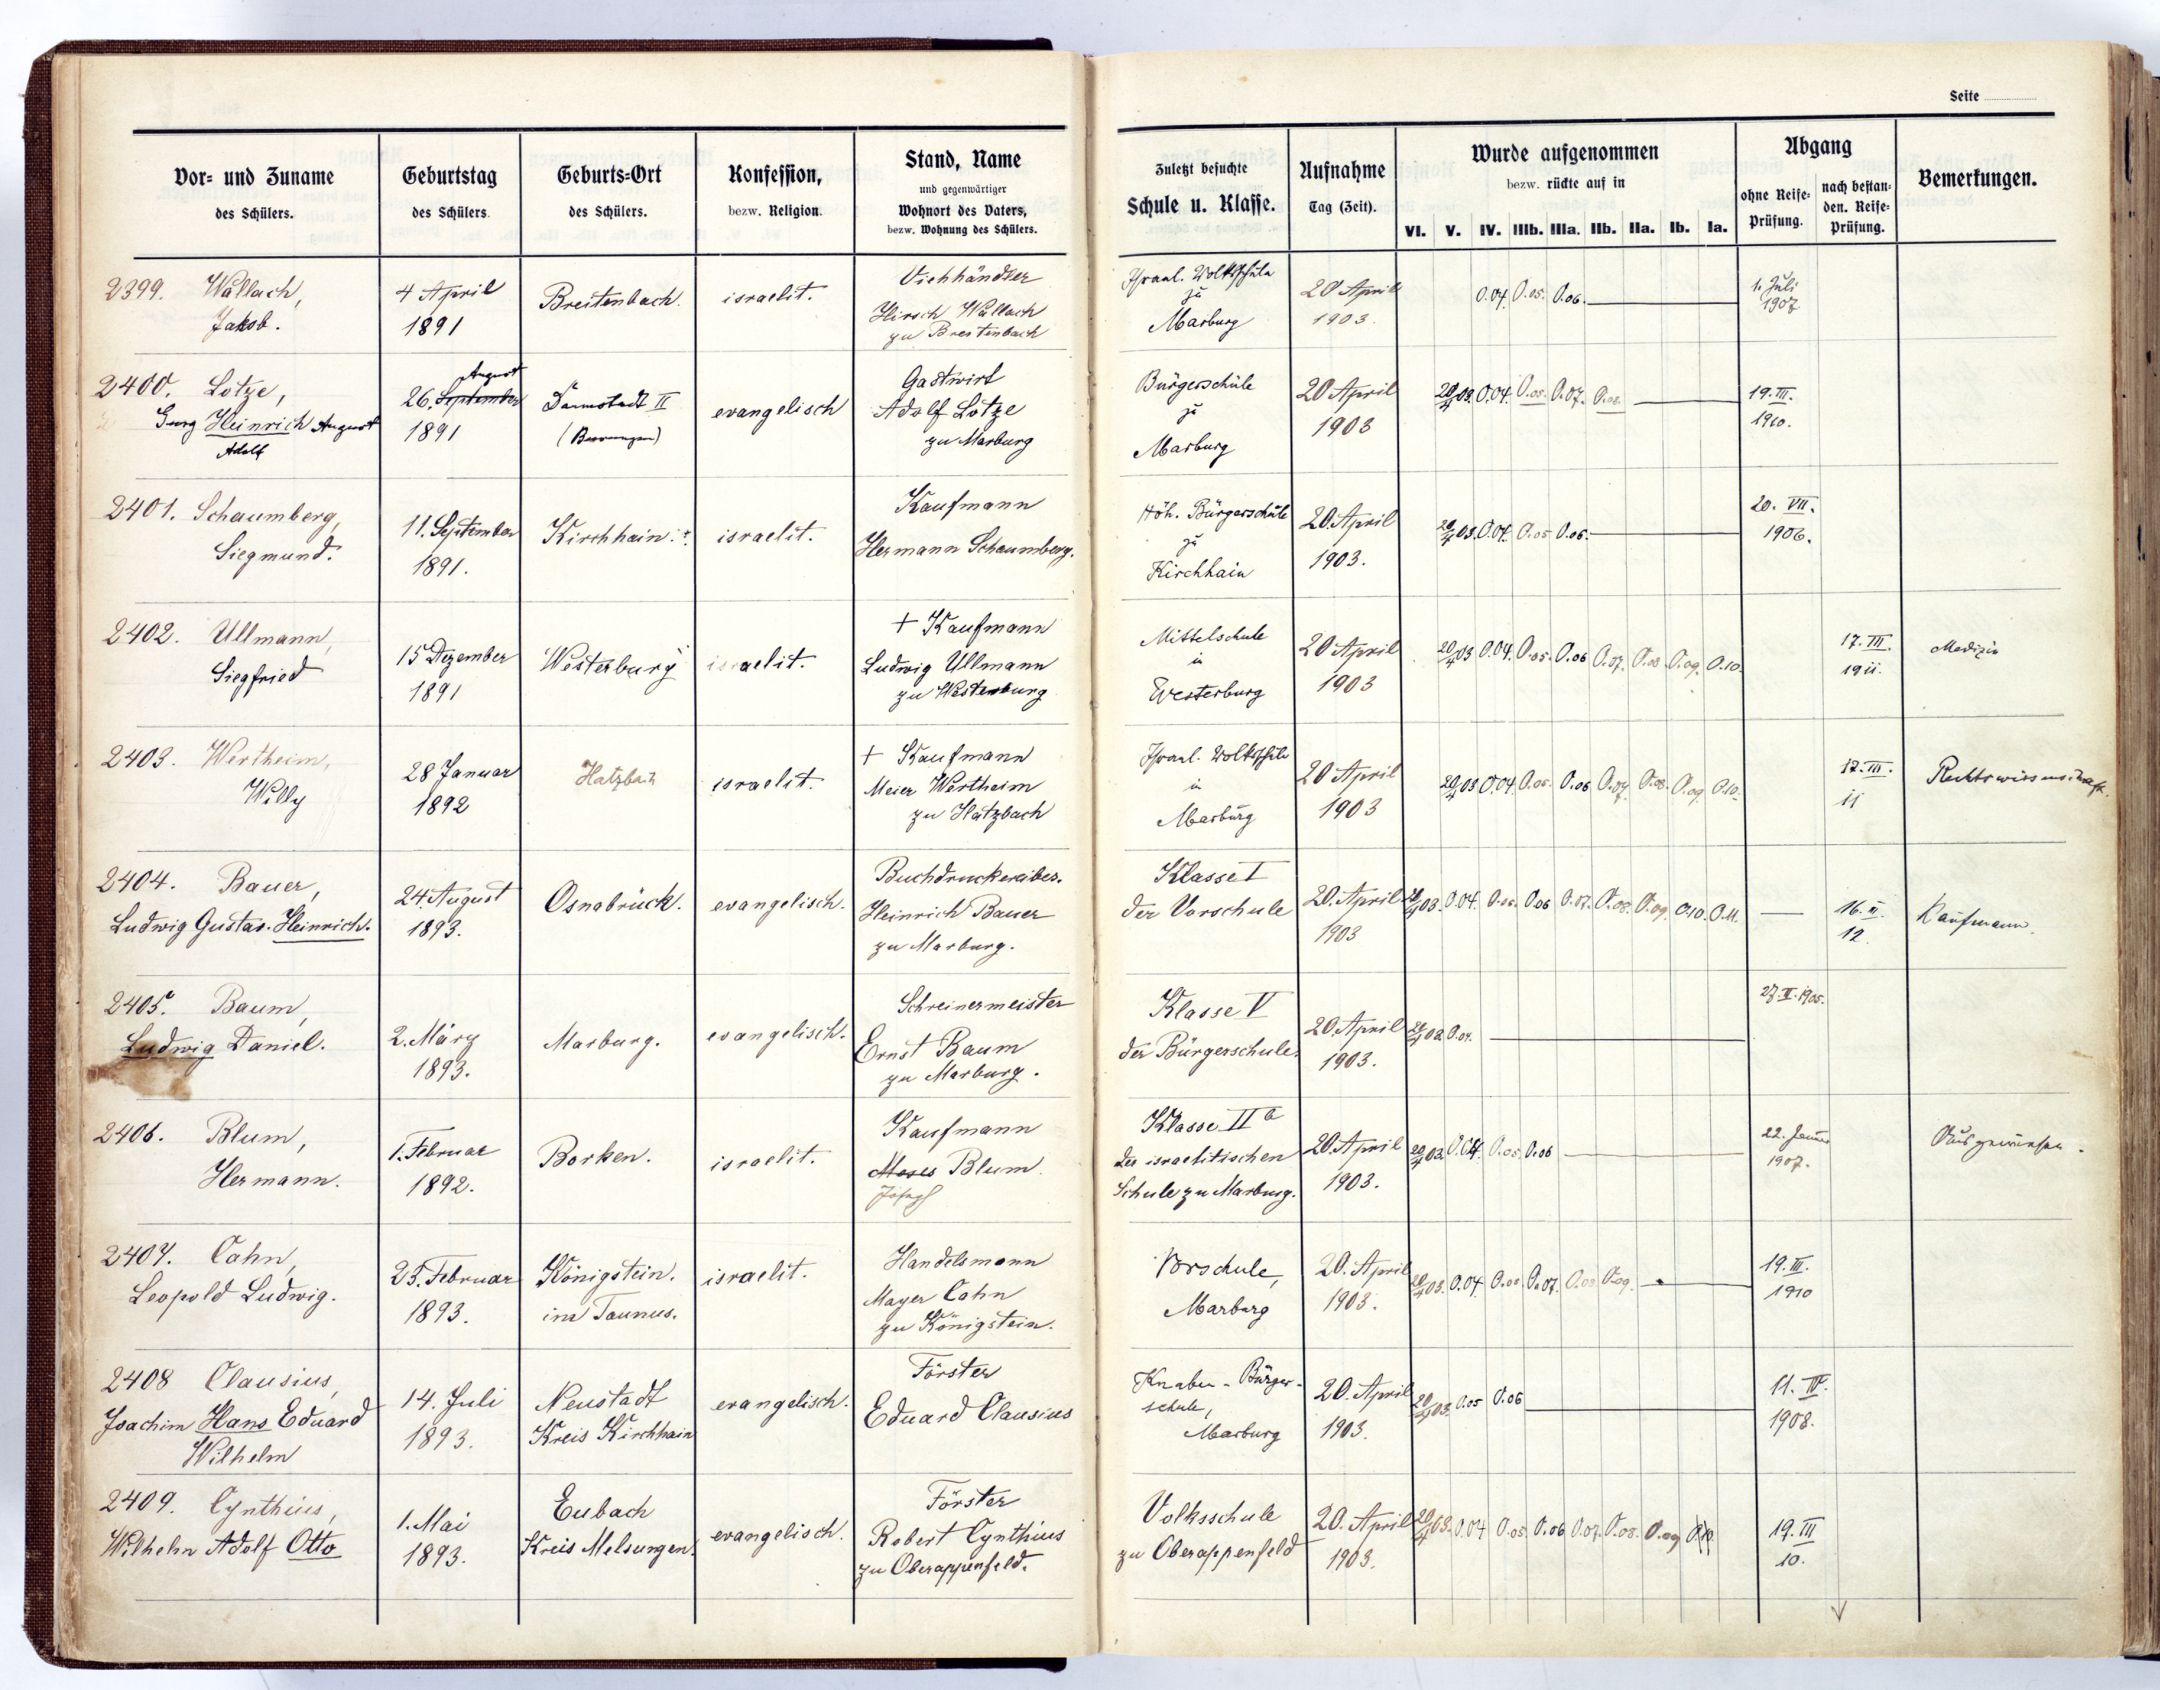 Seite
Vor- und Zuname
des Schülers.
Geburtstag
des Schülers.
Geburts-Ort
des Schülers.
Konfession,
bezw. Religion.
Stand, Name
und gegenwärtiger
Wohnort des Vaters,
bezw. Wohnung des Schülers.
Zuletzt besuchte
Schule u. Klasse.
Aufnahme
Tag (Zeit).
Wurde aufgenommen
bezw. rückte auf in
VI. V. IV. IIIb. IIIa. IIb. IIa. Ib. Ia.
Abgang
ohne Reife-
Prüfung.
nach bestan-
den. Reife-
Prüfung.
Bemerkungen.
2399. Wallach,
Jakob.
4 April
1891
Breitenbach.
israelit.
Viehhändler
Hirsch Wallach
zu Breitenbach
Israel. Volksschule
zu
Marburg
20 April
1903.
O.04. O.05. O.06.
1. Juli
1907
2400. Lotze,
Georg Heinrich August
Adolf
August
26. September
1891
Darmstadt II
evangelisch
Gastwirt
Adolf Lotze
zu Marburg
Bürgerschule
zu
Marburg
20 April
1903
20/4 03. O.04. O.05. O.07. O.08.
19. III.
1910.
2401. Schaumberg,
Siegmund.
11. September
1891.
Kirchhain
israelit.
Kaufmann
Hermann Schaumberg.
Höh. Bürgerschule
zu
Kirchhain
20. April
1903.
20/4 03. O.04. O.05 O.06.
20. VII.
1906.
2402. Ullmann,
Siegfried
15 Dezember
1891
Westerburg
israelit.
+ Kaufmann
Ludwig Ullmann
zu Westerburg
Mittelschule
in
Westerburg
20 April
1903
20/4 03 O.04. O.05. O.06 O.07. O.08 O.09. O.10.
17. III.
1911.
Medizin
2403. Wertheim,
Willy
28 Januar
1892
Hatzbach
israelit.
+ Kaufmann
Meier Wertheim
zu Hatzbach
Israel. Volksschule
in
Marburg
20 April
1903
20/4 03 O.04. O.05. O.06 O.07. O.08. O.09. O.10.
17. III.
11
Rechtswissenschaft.
2404. Bauer,
Ludwig Gustav. Heinrich.
24 August
1893.
Osnabrück.
evangelisch.
Buchdruckereibes.
Heinrich Bauer
zu Marburg.
Klasse I
der Vorschule
20. April
1903
20/4 03. O.04. O.05. O.06 O.07. O.08. O.09. O.10. O.11.
16. III.
12.
Kaufmann.
2405. Baum,
Ludwig Daniel.
2. März
1893.
Marburg.
evangelisch.
Schreinermeister
Ernst Baum
zu Marburg.
Klasse V
der Bürgerschule.
20. April
1903.
20/4 03. O.04.
27. II. 1905.
2406. Blum,
Hermann.
1. Februar
1892.
Borken.
israelit.
Kaufmann
Moses Blum.
Joseph
Klasse II a
der israelitischen
Schule zu Marburg.
20. April
1903.
20/4 03. O.04. O.05. O.06
22. Januar
1907.
Ausgewiesen.
2407. Cahn,
Leopold Ludwig.
25. Februar
1893.
Königstein.
im Taunus.
israelit.
Handelsmann
Mayer Cahn
zu Königstein.
Vorschule,
Marburg
20. April
1903.
20/4 03. O.04 O.05 O.07. O.08 O.09.
19. III.
1910
2408 Clausius,
Joachim Hans Eduard
Wilhelm
14. Juli
1893.
Neustadt
Kreis Kirchhain
evangelisch.
Förster
Eduard Clausius
Knaben-Bürger-
schule,
Marburg
20. April
1903.
20/4 03. O.05 O.06
11. IV.
1908.
2409. Cynthius,
Wilhelm Adolf Otto
1. Mai
1893.
Eubach
Kreis Melsungen.
evangelisch.
Förster
Robert Cynthius
zu Oberappenfeld.
Volksschule
zu Oberappenfeld
20. April
1903.
20/4 03. O.04 O.05 O.06 O.07. O.08. O.09 O.10.
19. III
10.